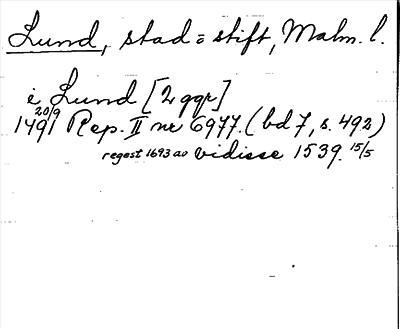 Lund, stad = stift, Malm. l.
i Lund [2 ggr]
1491 20/9 Rep. II nr 6977. (bd 7, s. 492)
regest 1693 av vidisse 1539 15/5